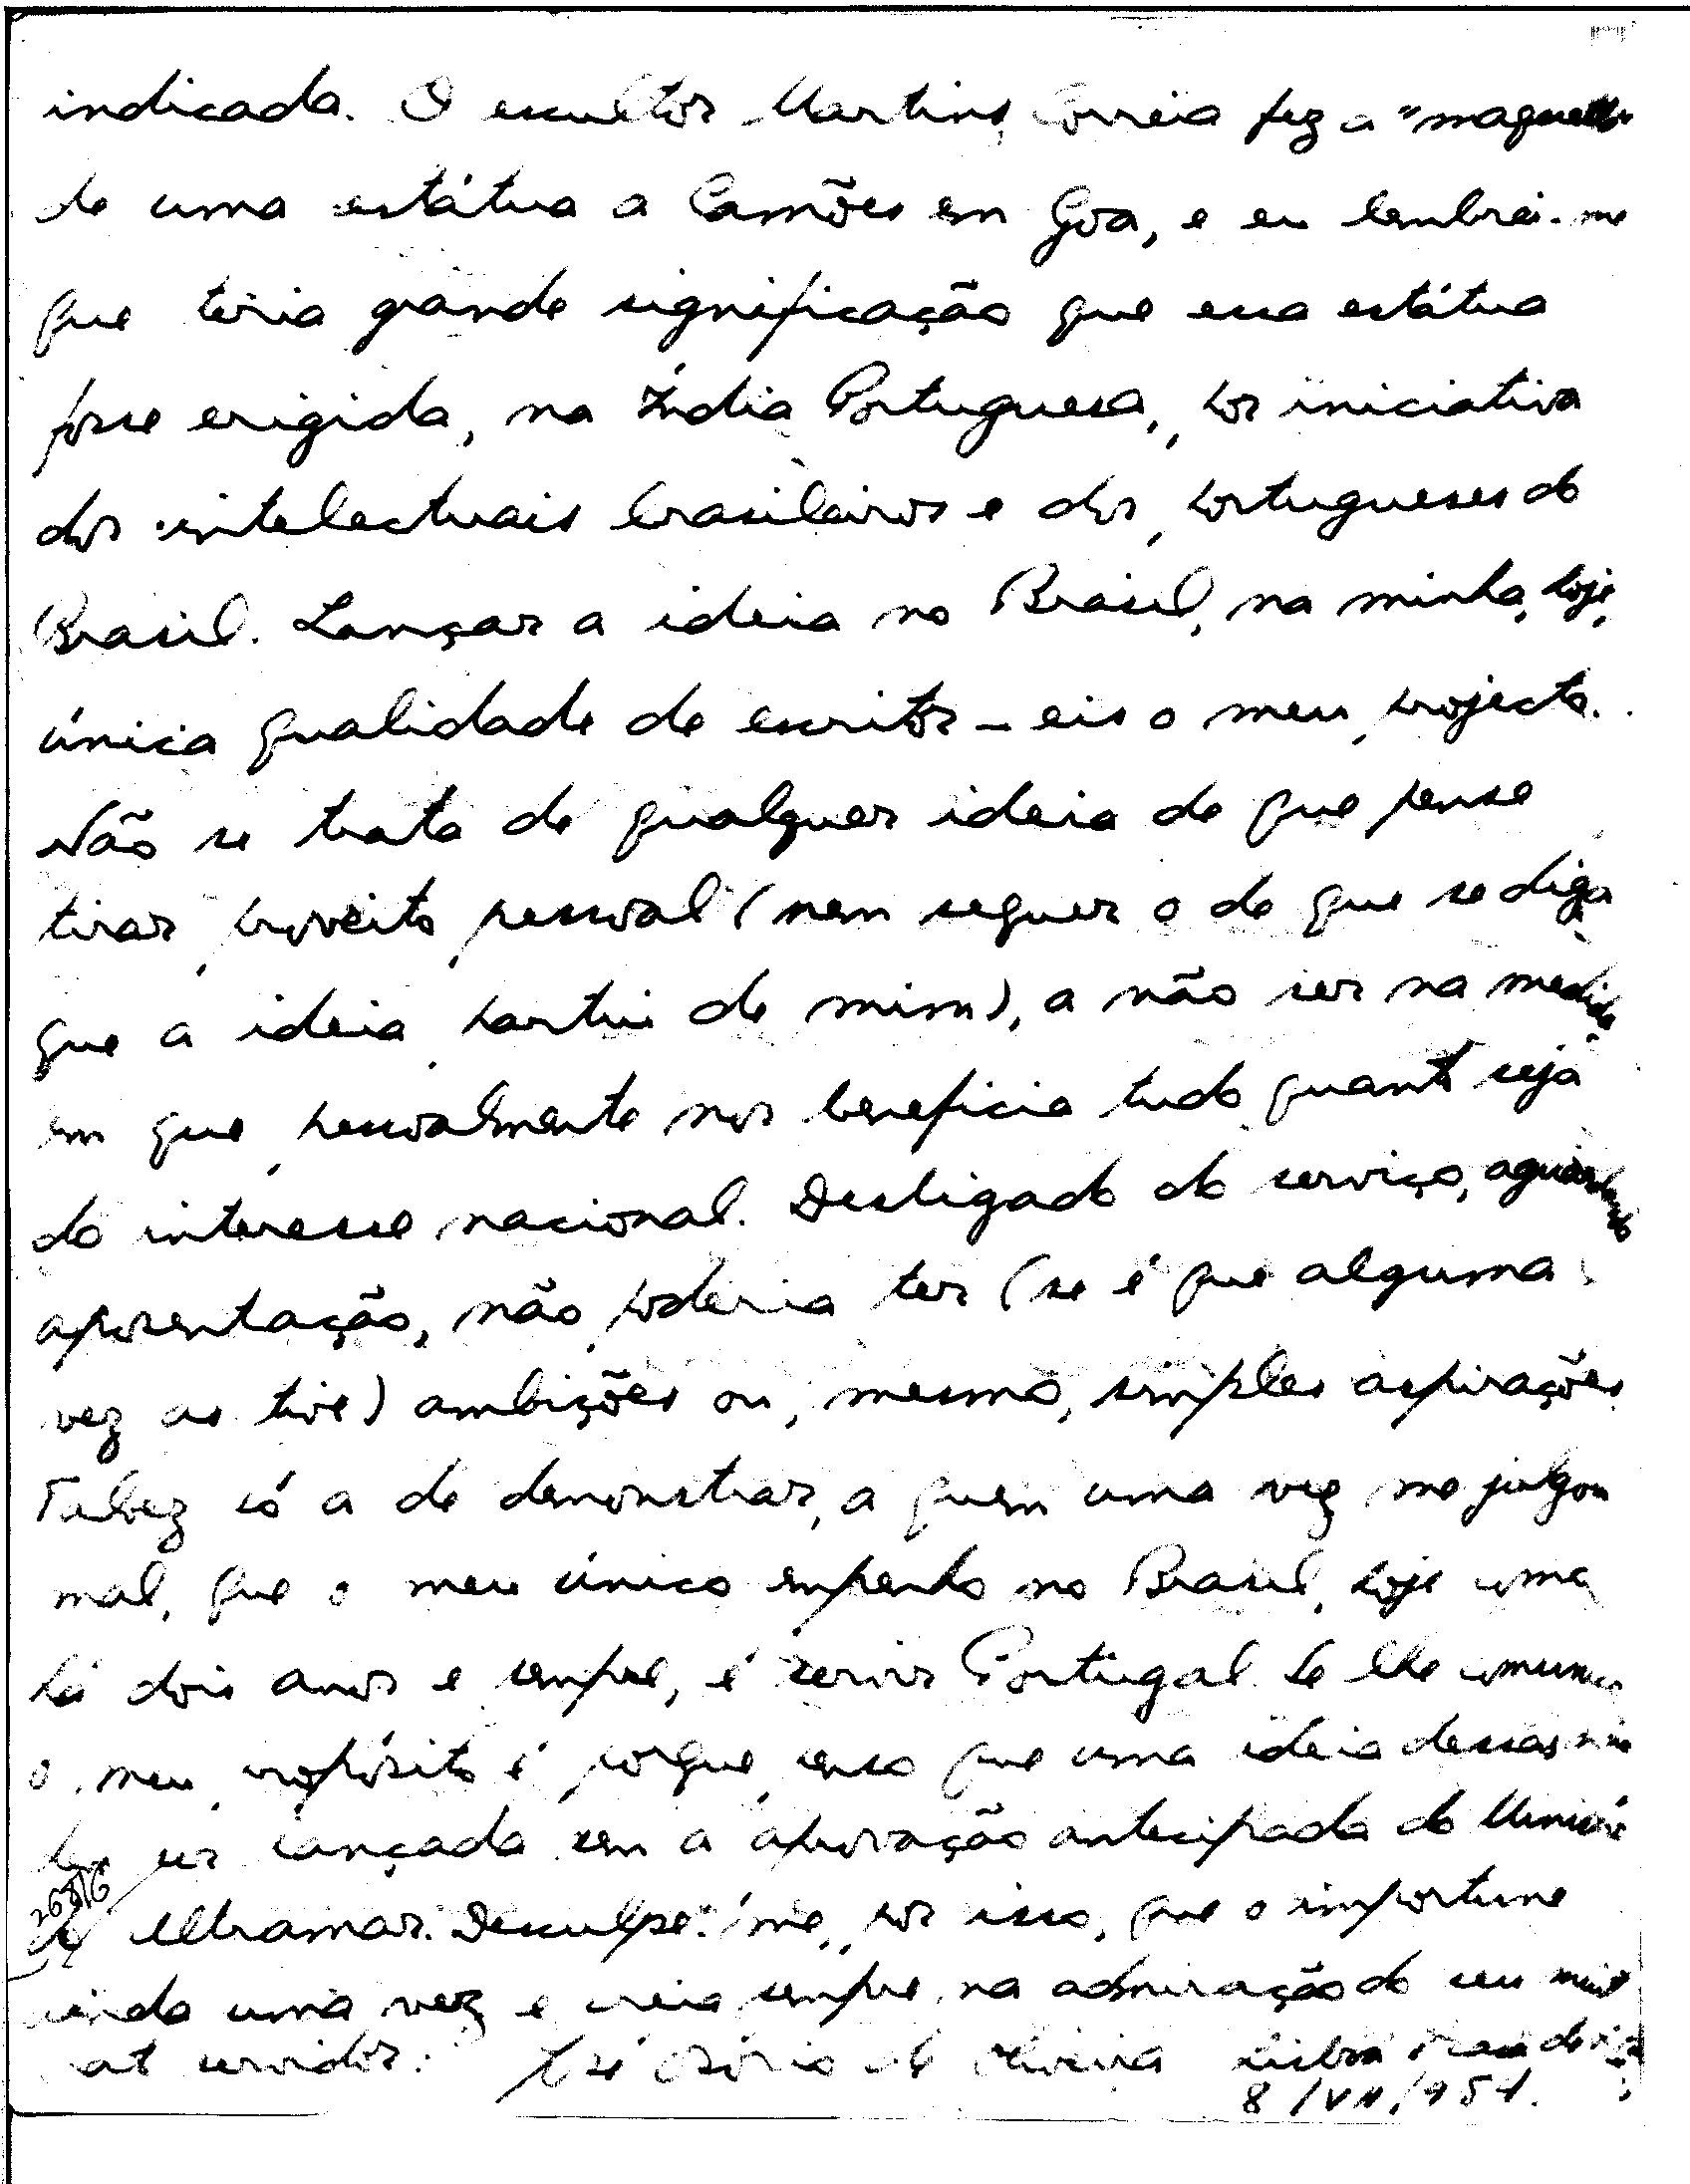 indicada. O escultor Martins Correia fez a "maquette"
de uma estátua a Camões em Goa, e eu lembrei-me
que teria grande significação que essa estátua
fosse erigida, na Índia Portuguesa, por iniciativa
dos intelectuais brasileiros e dos portugueses do
Brasil. Lançar a ideia no Brasil, na minha, hoje,
única qualidade de escritor - eis o meu projecto.
Não se trata de qualquer ideia de que pense
tirar proveito pessoal (nem sequer o de que se diga
que a ideia partiu de mim), a não ser na medida
em que pessoalmente nos beneficia tudo quanto seja
do interesse nacional. Desligado do serviço, aguardando
aposentação, não poderia ter (se é que alguma
vez as tive) ambições ou, mesmo, simples aspirações.
Talvez só a de demonstrar, a quem uma vez me julgou
mal, que o meu único empenho no Brasil, hoje como
há dois anos e sempre, é servir Portugal. Se lhe comunico
o meu propósito é porque penso que uma ideia dessas não
deve ser lançada sem a aprovação antecipada do Ministro
do Ultramar. Desculpe-me, por isso, que o importune
ainda uma vez e creia sempre na admiração do seu muito
at servidor. José Osório de Oliveira Lisboa
8/VII/954.
26816